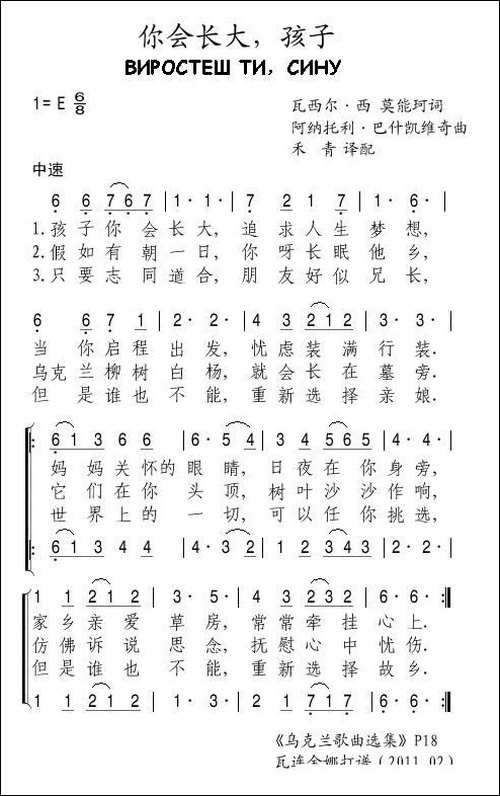 你会长大，孩子
ВИРОСТЕШ ТИ, СИНУ
1=E 6/8
瓦西尔·西 莫能珂词
阿纳托利·巴什凯维奇曲
禾 青 译配
中速
6 6 767 | 1· 1· | 7 2 1 7 | 1· 6· |
1.孩子你 会长大，追 求人生 梦 想，
2.假如有 朝一日，你 呀长眠 他 乡，
3.只要志 同道合，朋 友好似 兄 长，
6 6 7 1 | 2· 2· | 4 3 212 | 3· 3· |
当 你启程 出发，忧虑装满行装．
乌克兰柳树白杨，就会长在墓旁．
但 是谁也 不能，重新选择亲娘．
6 1 3 6 6 | 6· 5 4 | 3 4 5 6 5 | 4· 4· |
妈 妈关怀的眼 睛，日夜在你身旁，
它 们在你 头 顶，树叶沙沙作响，
世 界上的 一 切，可以任你挑选，
6 1 3 4 4 | 4· 3 2 | 1 2 3 4 3 | 2· 2· |
1 1 2 1 2 | 3· 5· | 4 3 2 1 7 | 6· 6· :|
家 乡亲 爱 草 房，常常牵 挂 心上．
仿 佛诉 说 思 念，抚慰心 中 忧伤．
但 是谁 也 不 能，重新选 择 故乡．
1 1 2 1 2 | 3· 3· | 2 1 7 1 7 | 6· 6· :|
《乌克兰歌曲选集》P18
瓦连金娜打谱(2011.02)